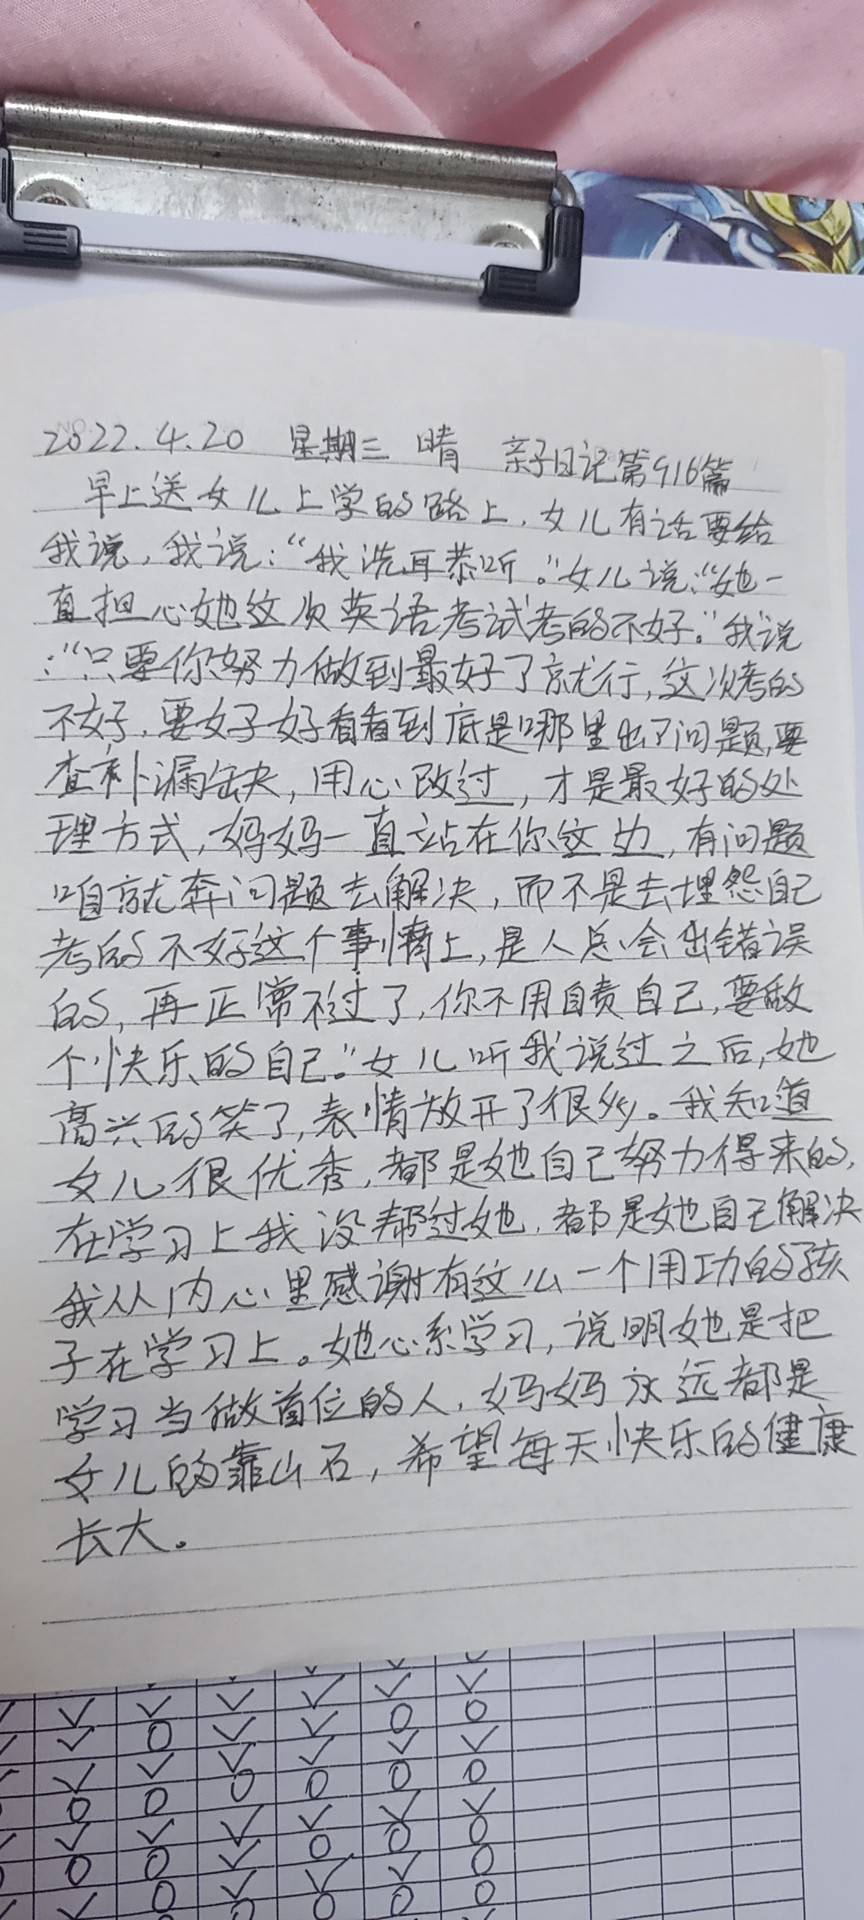 2022.4.20 星期三 晴 亲子日记第916篇
早上送女儿上学的路上，女儿有话要给
我说，我说：“我洗耳恭听。”女儿说：“她一
直担心她这次英语考试考的不好。”我说
：“只要你努力做到最好了就行，这次考的
不好，要好好看看到底是哪里出了问题，要
查补漏缺，用心改过，才是最好的处
理方式，妈妈一直站在你这边，有问题
咱就奔问题去解决，而不是去埋怨自己
考的不好这个事情上，是人总会出错误
的，再正常不过了，你不用自责自己，要做
个快乐的自己。”女儿听我说过之后，她
高兴的笑了，表情放开了很多。我知道
女儿很优秀，都是她自己努力得来的，
在学习上我没帮过她，都是她自己解决
我从内心里感谢有这么一个用功的孩
子在学习上。她心系学习，说明她是把
学习当做首位的人，妈妈永远都是
女儿的靠山石，希望每天快乐的健康
长大。